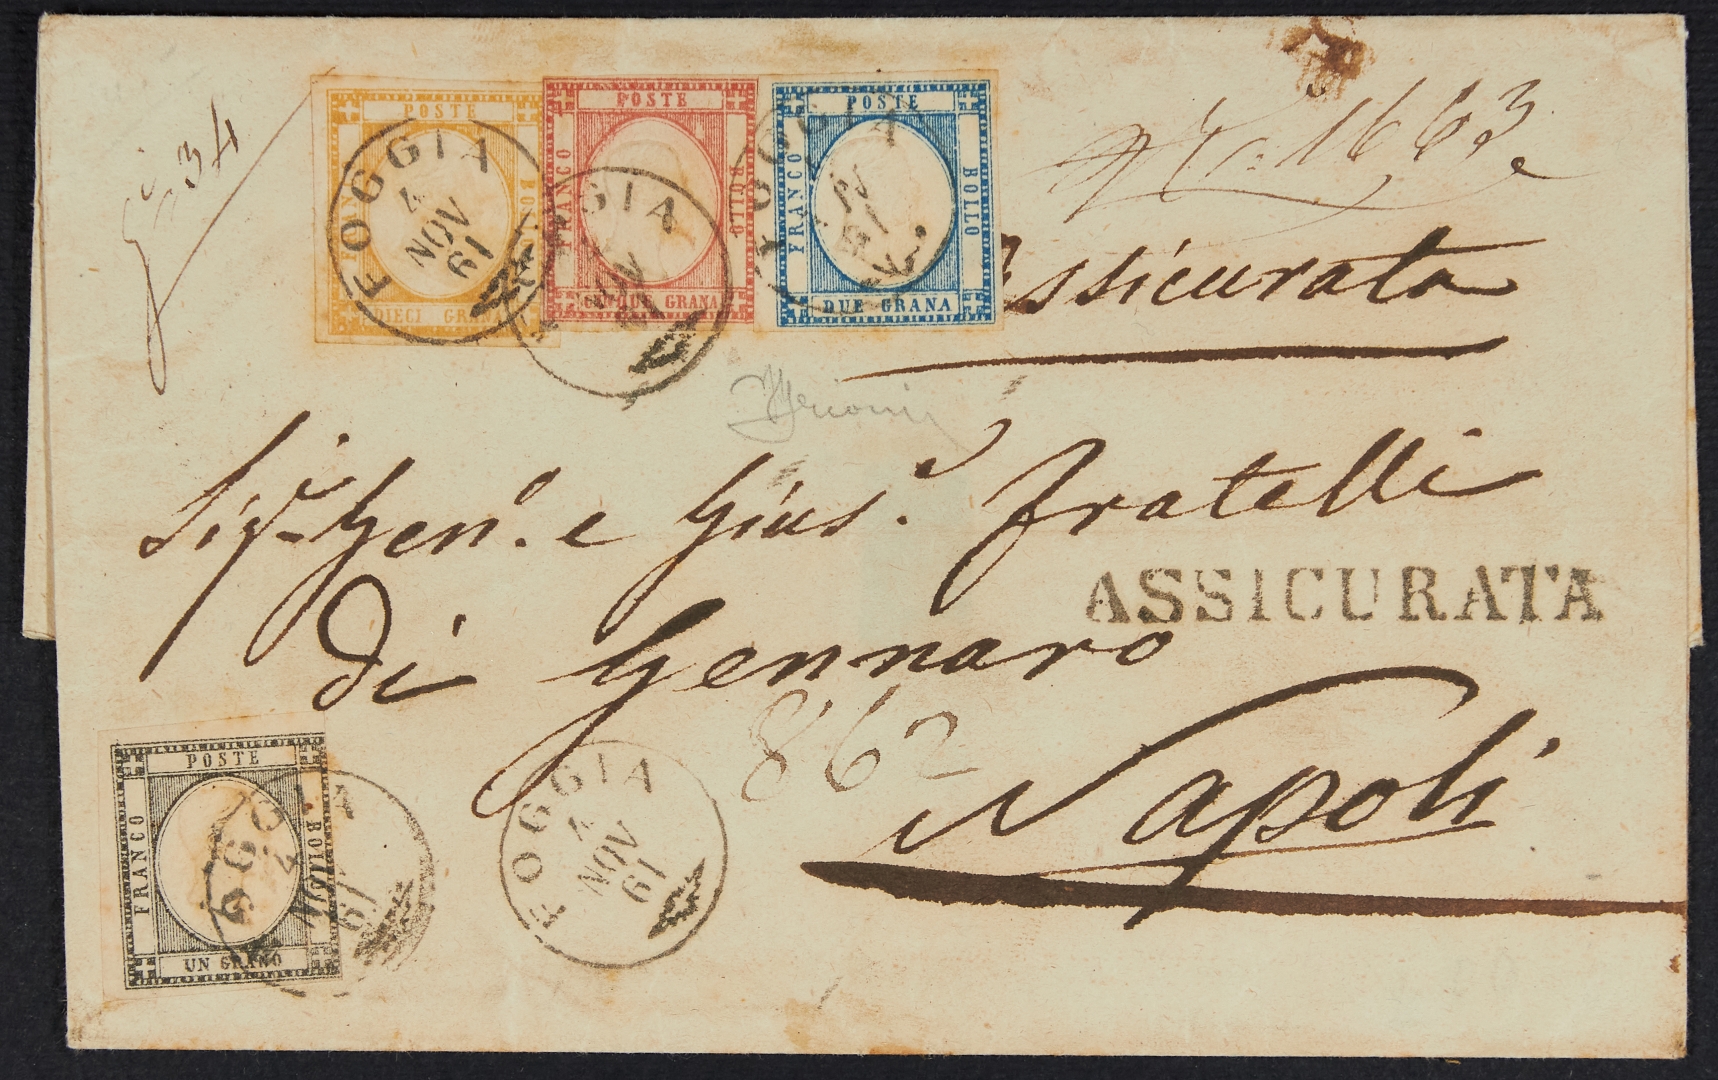 POSTE
FRANCO
BOLLO
DIECI GRANA
FOGGIA
4
NOV
61
POSTE
FRANCO
BOLLO
CINQUE GRANA
FOGGIA
NOV
61
POSTE
FRANCO
BOLLO
DUE GRANA
FOGGIA
61
34
N. 1663
Assicurata
Sigri Geno. e Gius.e fratelli
ASSICURATA
di Gennaro
862
Napoli
POSTE
FRANCO
BOLLO
UN GRANO
FOGGIA
61
FOGGIA
4
NOV
61